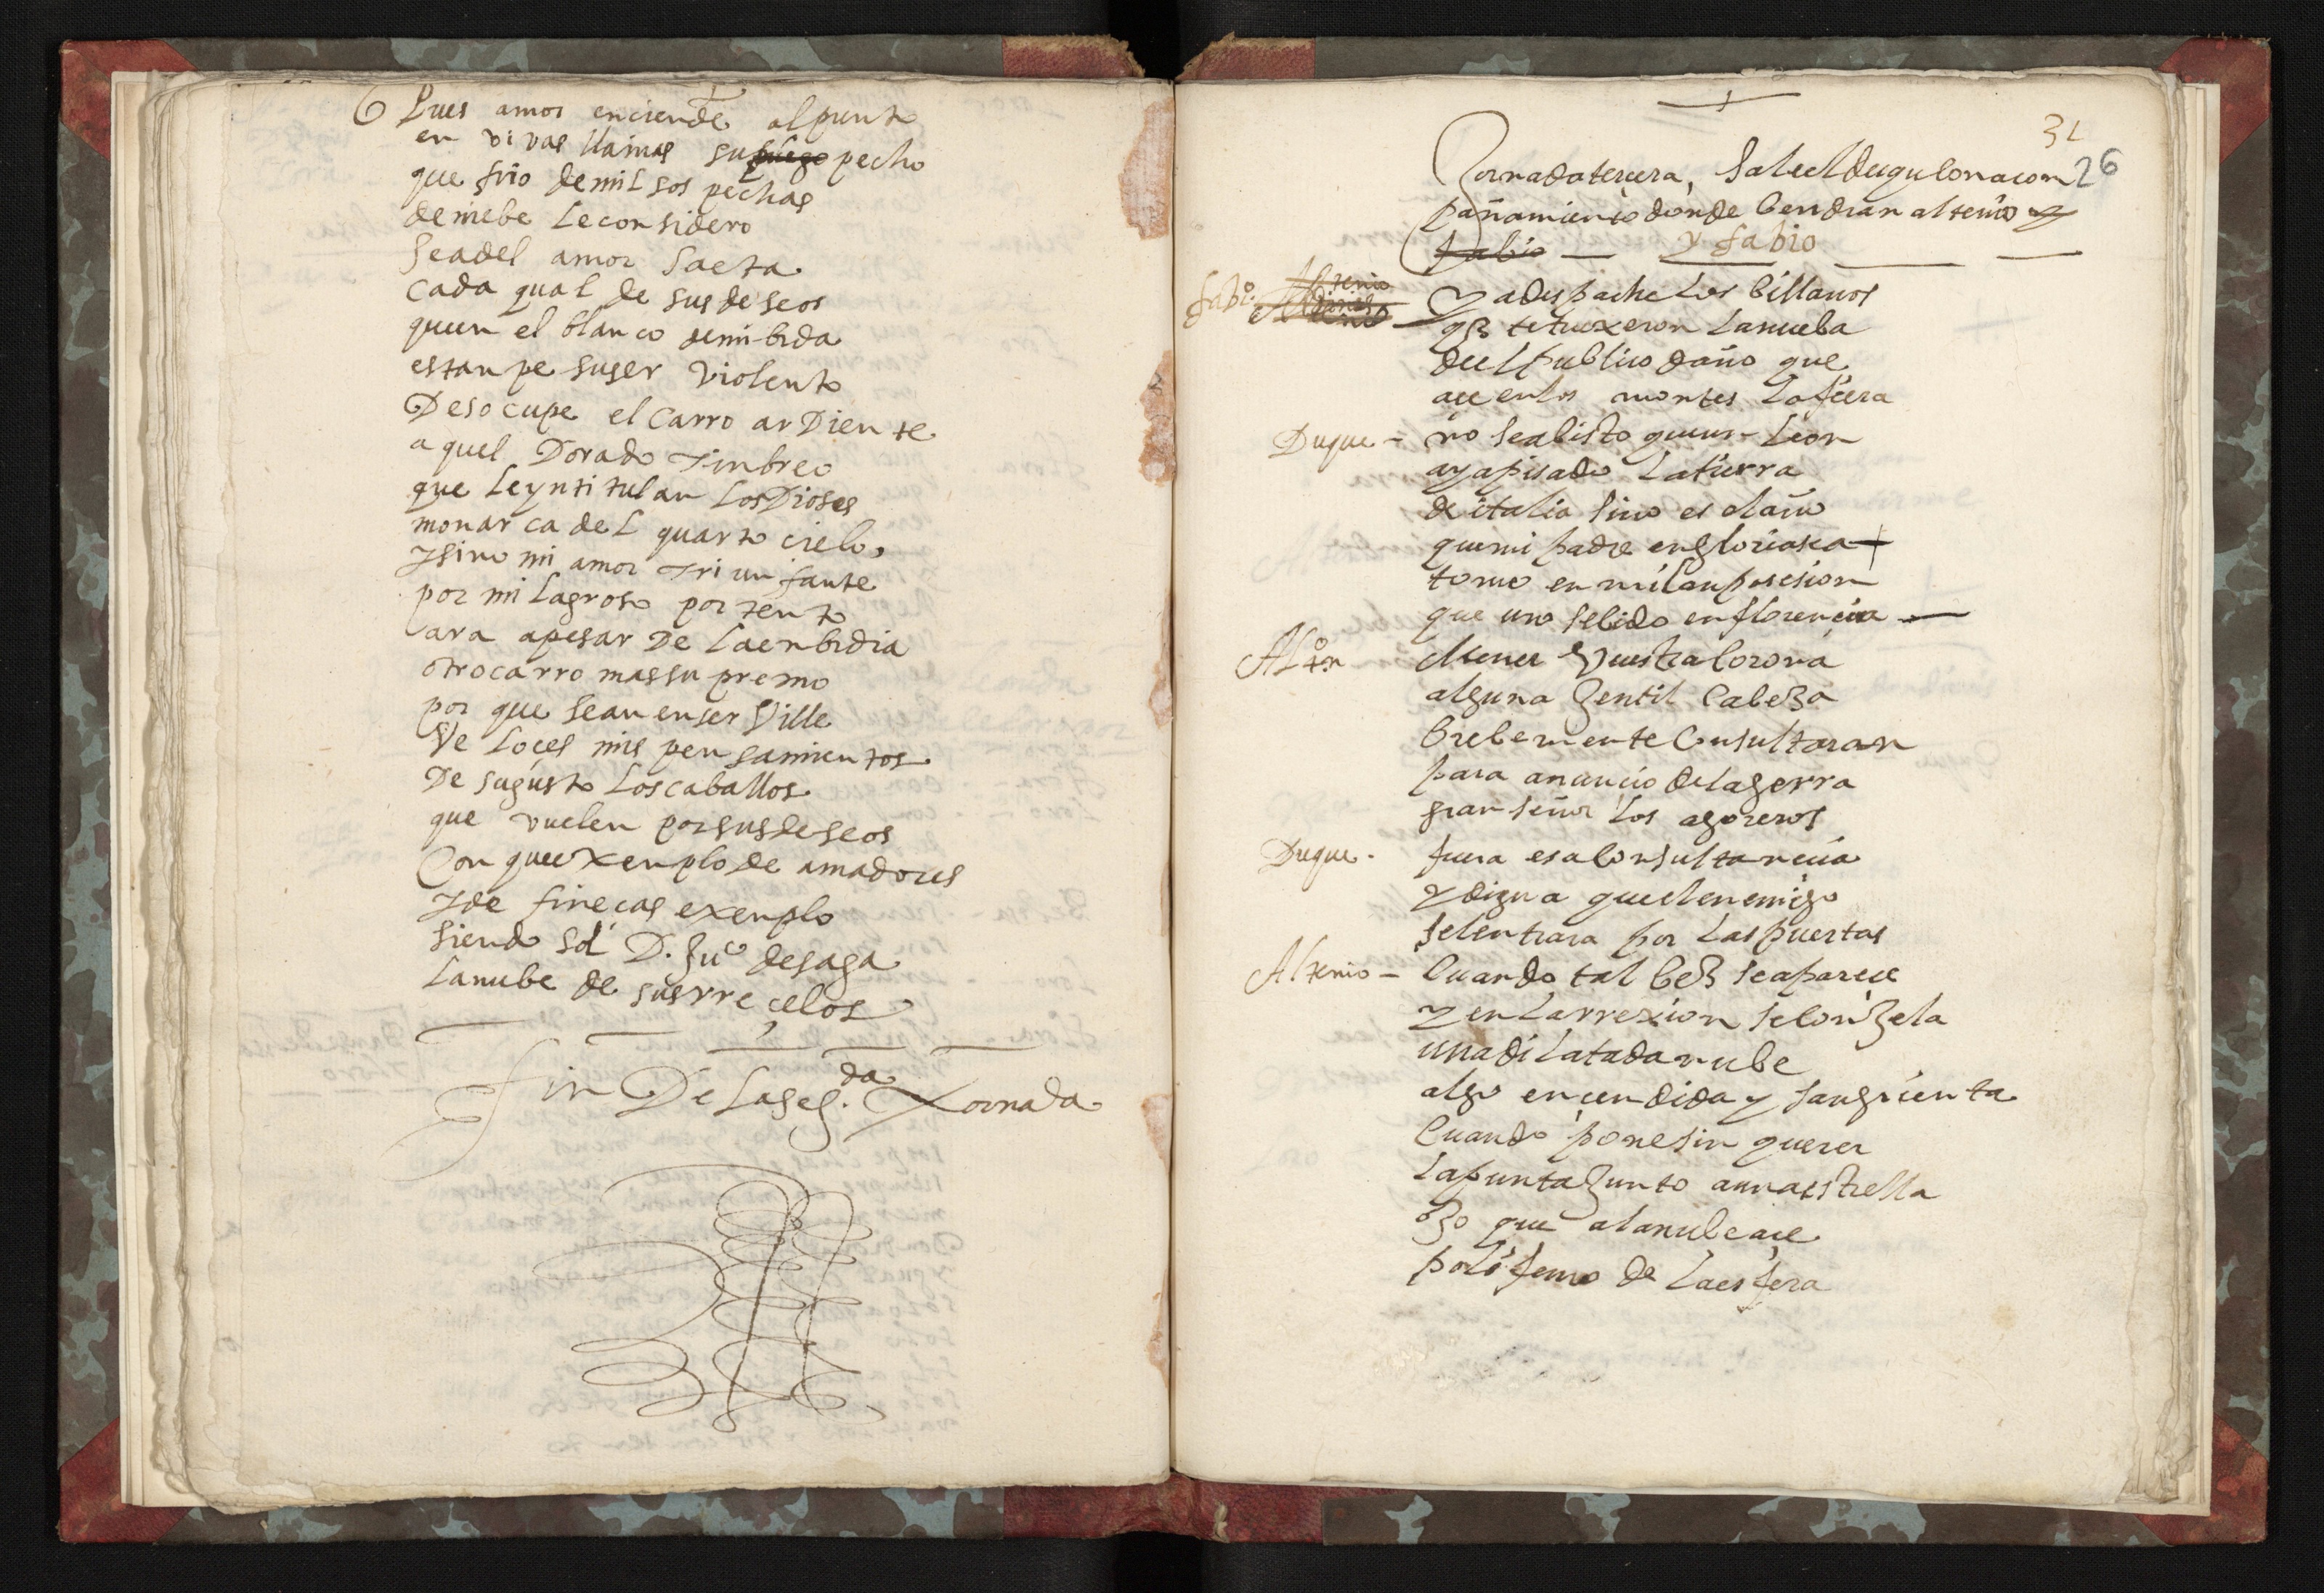 Pues amor enciende al punto
en vivas llamas su fuego pecho
que frio de mil sospechas
de niebe le considero
sea del amor saeta
cada qual de sus deseos
que en el blanco de mi bida
estanpe su ser violento
Desocupe el carro arDiente
aquel Dorado Timbreo
que le yntitulan los Dioses
monarca del quarto cielo,
y sino mi amor triunfante
por milagroso portento
ara apesar De la enbidia
otro carro mas supremo
por que sean en ser Ville
Veloces mis pensamientos
De su gusto los caballos
que vuelen por sus deseos
Con que exenplo de amadores
y de finecas exenplo
siendo sol D. Juº desaga
la nube de sus rreçelos
Fin De la seg.da Xornada
31
26
Jornada tercera, Sale el duq con acom
pañamiento donde bendran altenio y
fabio y fabio
fabio. ya despache los billanos
q te truxeron la nueba
del publico daño que
ace en los montes la fiera
Duque - no sea bisto que un leon
aya pisado la tierra
de italia sino es el año
que mi padre en gloria sea
tomo en milan posesion
que uno se bido en florencia
Alten
vuestra corona
alguna gentil cabeza
brebemente consultaran
para anuncio de la gerra
gran señor los agoreros
Duque. fuera esa consulta necia
y digna que el enemigo
se le entrara por las puertas
Altenio - Cuando tal bez se aparece
y en la rrexion se congela
una dilatada nube
algo encendida y sangrienta
Cuando pone sin querer
la punta junto a una estrella
ojo que a la nube ace
polifemo de la esfera